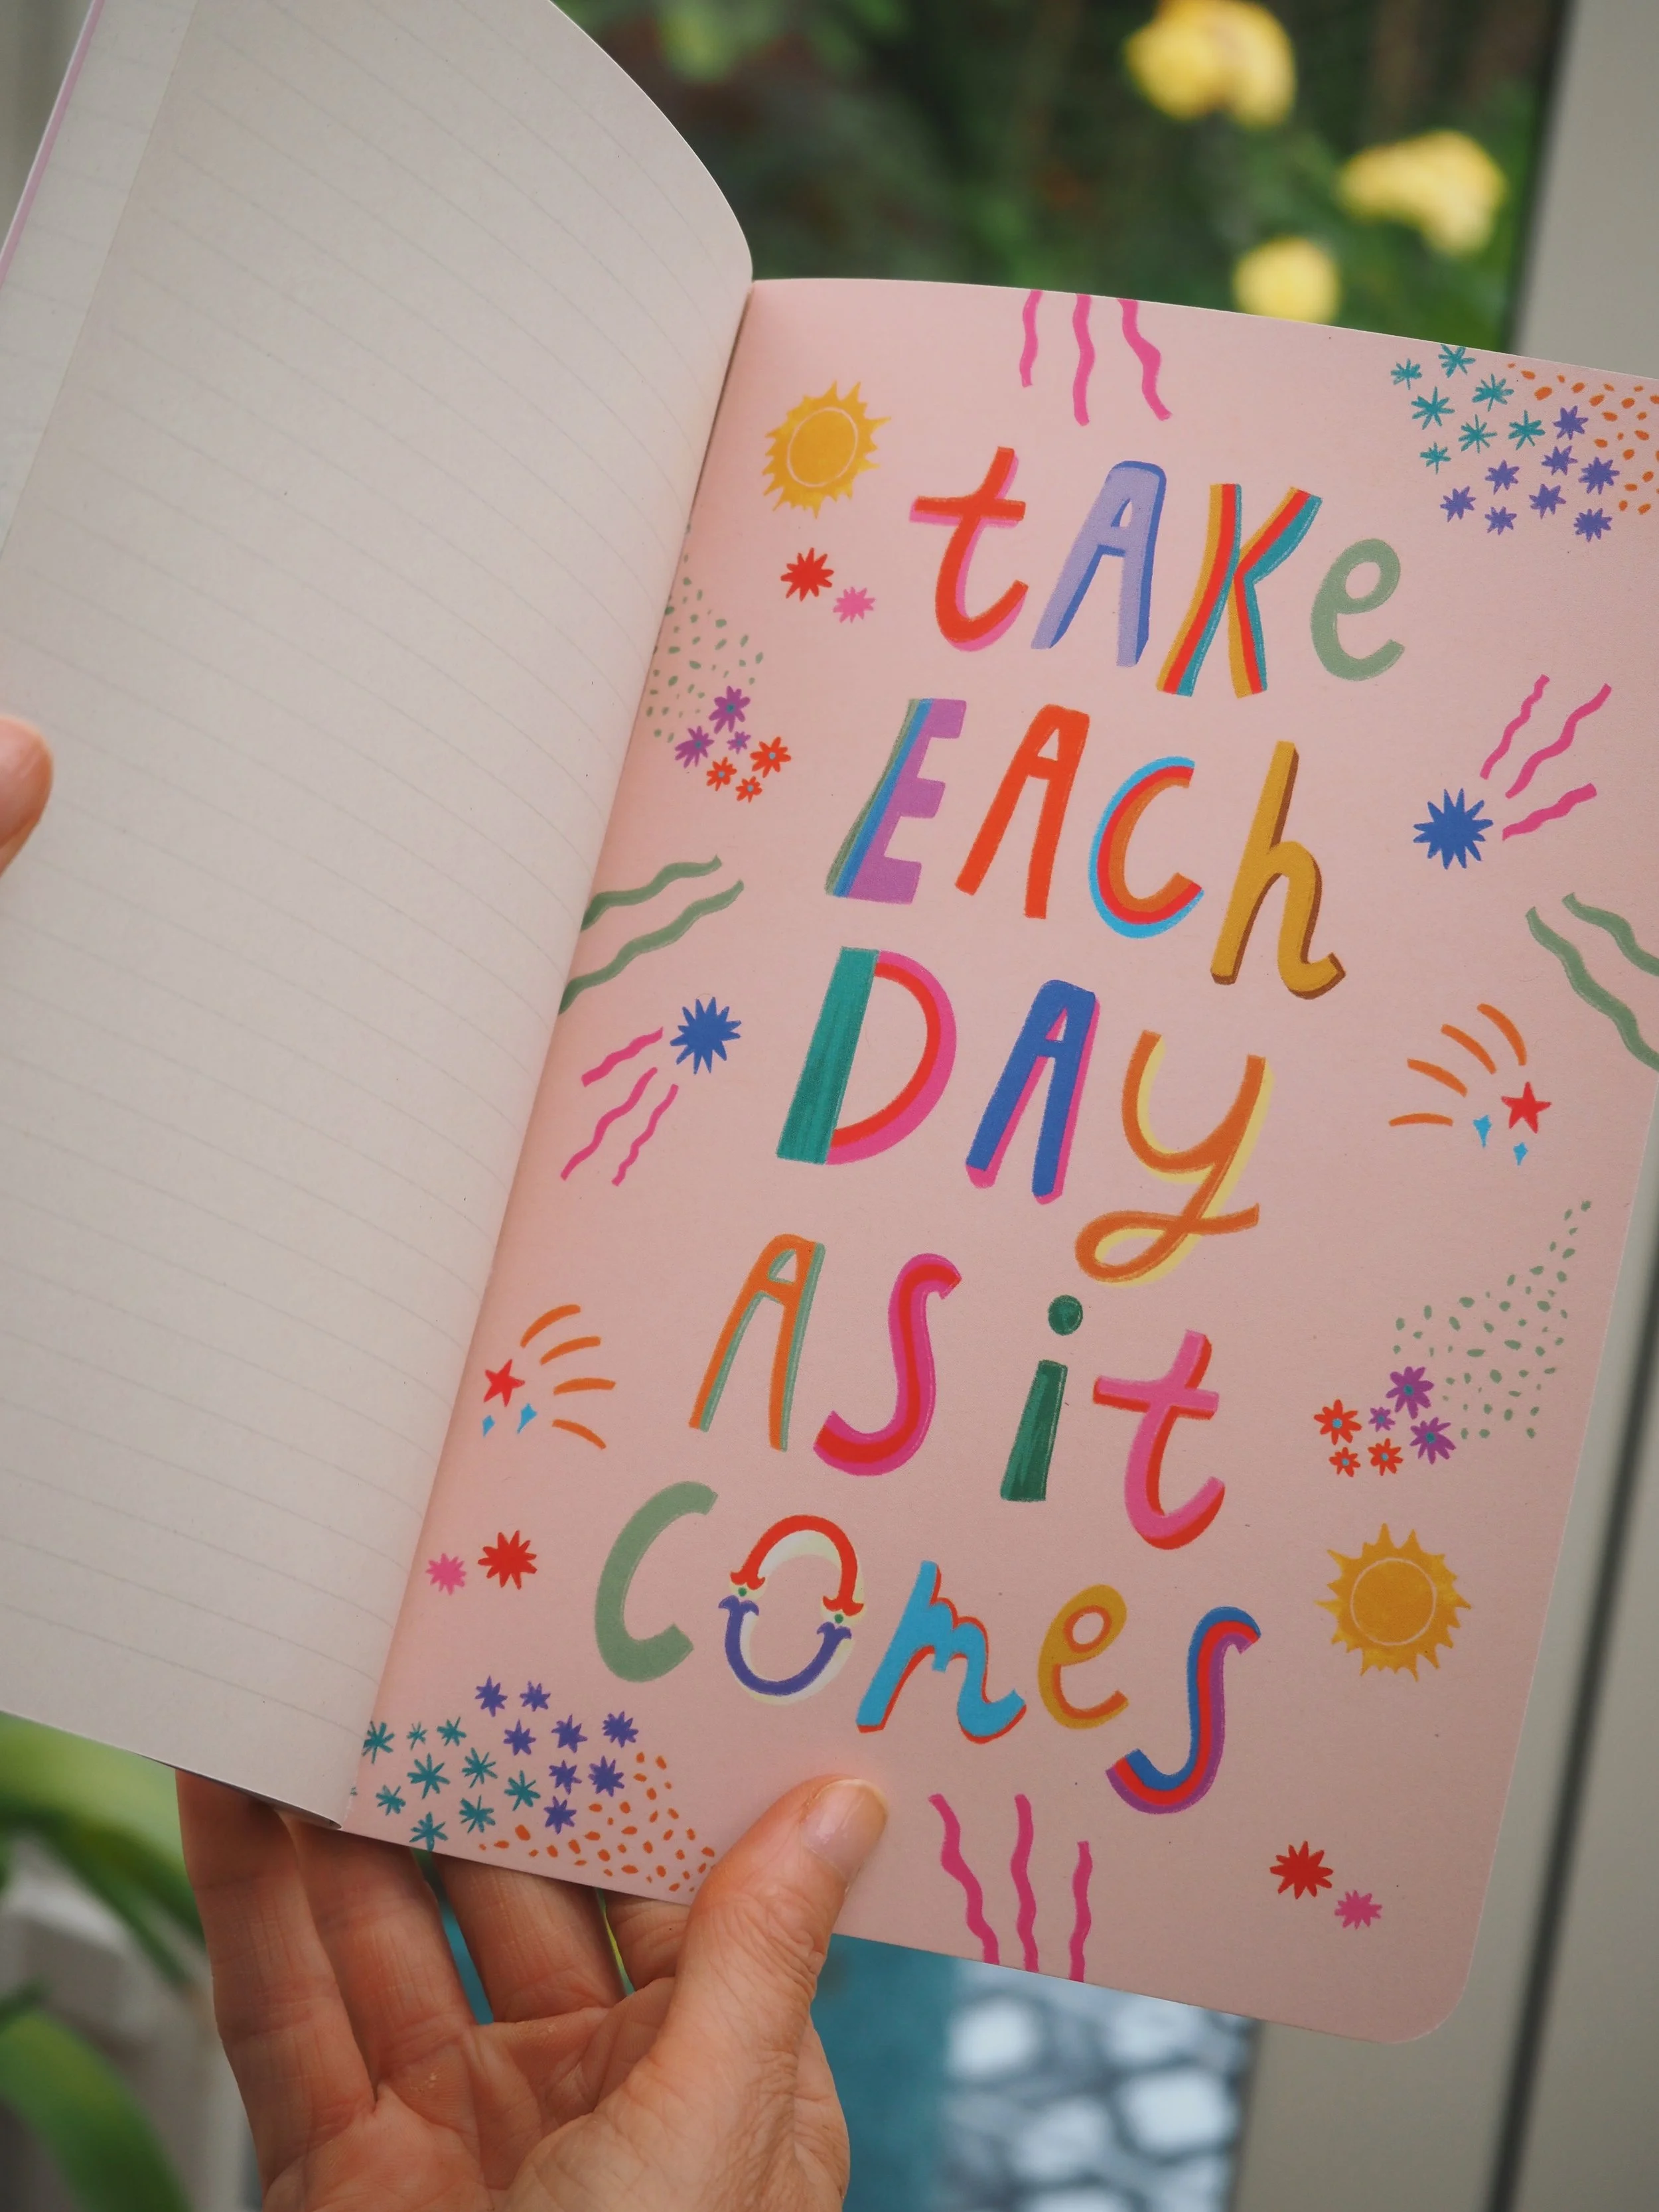 tAKe
EACh
DAy
AS it
COmeS